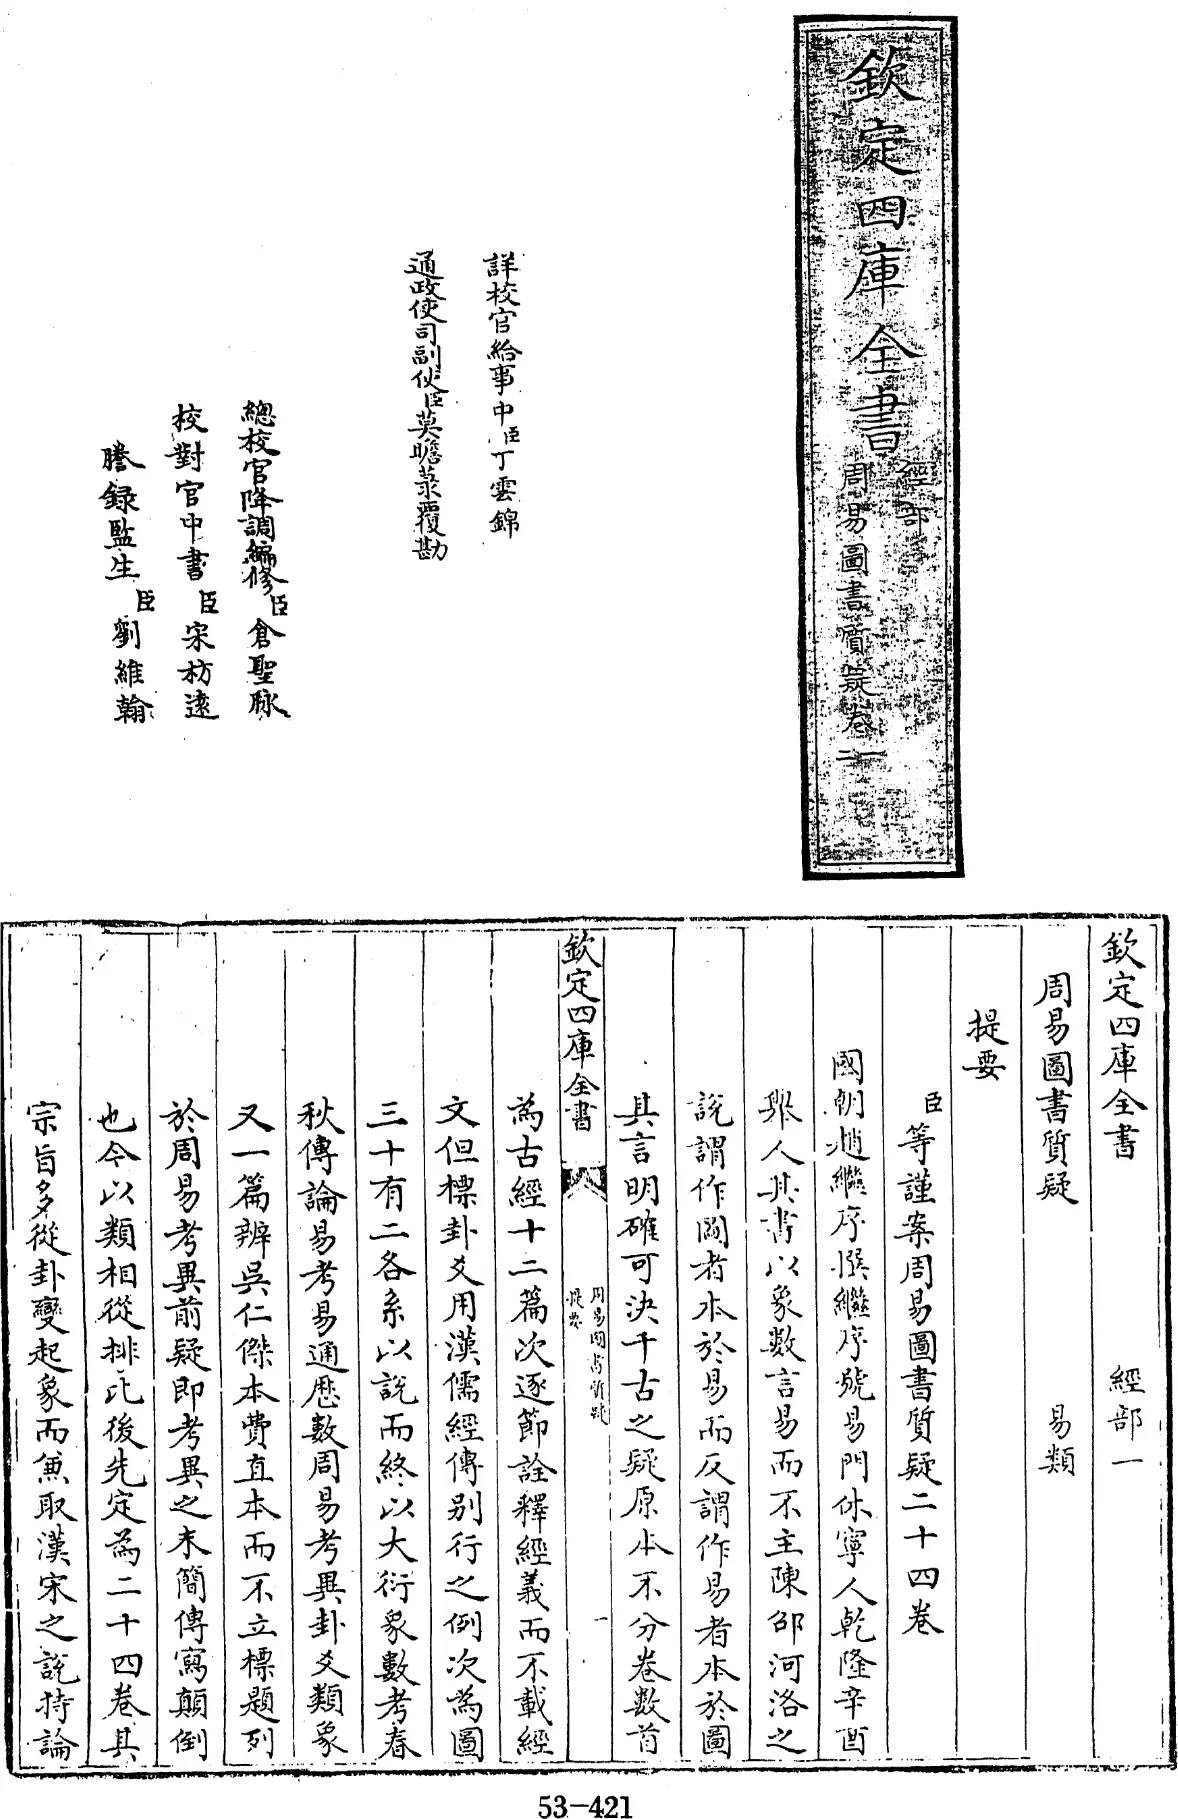 欽定四庫全書
經部
周易圖書質疑卷一二
詳校官給事中臣丁雲錦
通政使司副使臣莫瞻菉覆勘
總校官降調編修臣倉聖脉
校對官中書臣宋枋遠
謄錄監生臣劉維翰
欽定四庫全書 經部一
周易圖書質疑 易類
提要
臣等謹案周易圖書質疑二十四卷
國朝趙繼序撰繼序號易門休寧人乾隆辛酉
舉人其書以象數言易而不主陳邵河洛之
說謂作圖者本於易而反謂作易者本於圖
其言明確可決千古之疑原本不分卷數首
欽定四庫全書 周易圖書質疑 提要 一
為古經十二篇次逐節詮釋經義而不載經
文但標卦爻用漢儒經傳別行之例次為圖
三十有二各系以說而終以大衍象數考春
秋傳論易考易通歷數周易考異卦爻類象
又一篇辨吳仁傑本費直本而不立標題列
於周易考異前疑即考異之末簡傳寫顛倒
也今以類相從排比後先定為二十四卷其
宗旨多從卦變起象而兼取漢宋之說持論
53-421